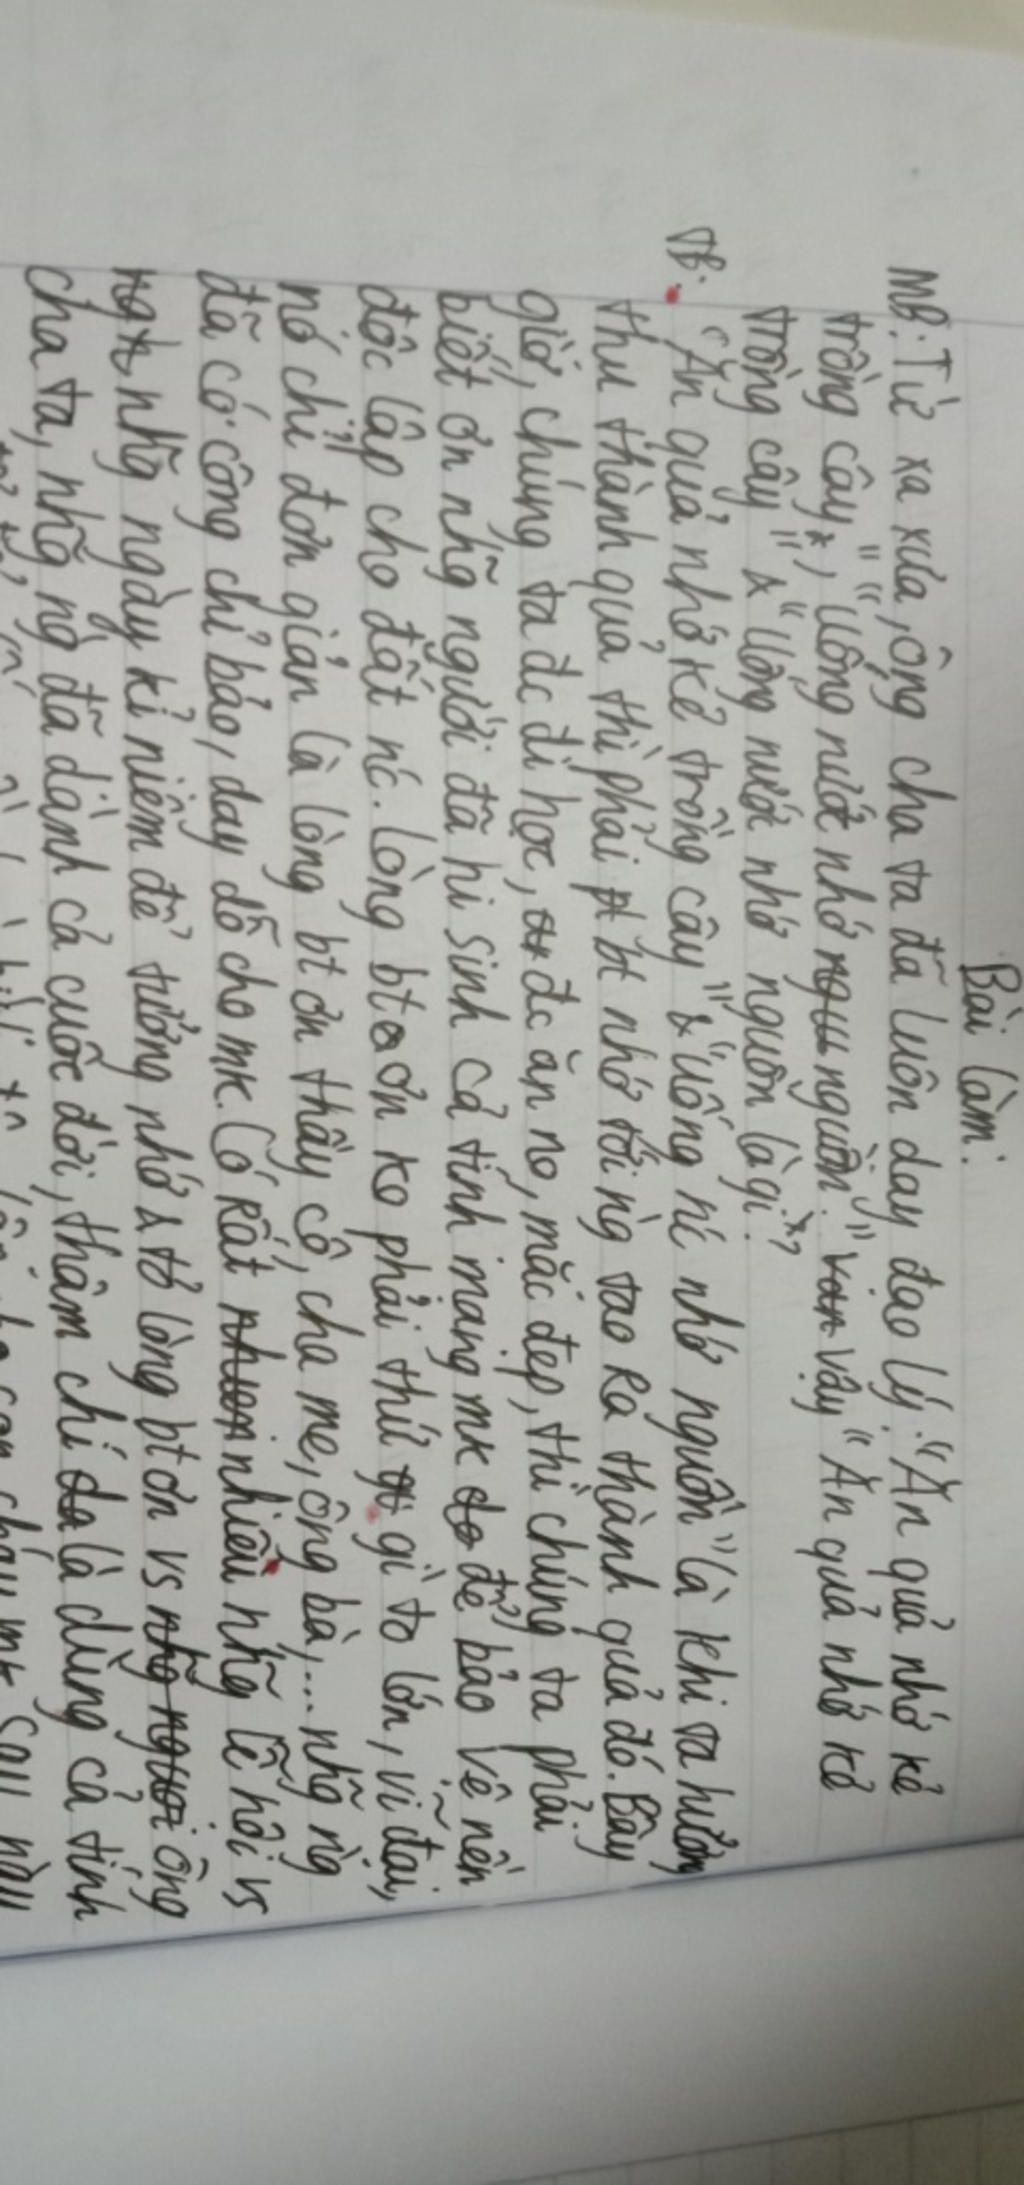 Bài làm:
MB: Từ xa xưa, ông cha ta đã luôn dạy đạo lý: "Ăn quả nhớ kẻ
trồng cây", "Uống nước nhớ nguồn." Vậy "Ăn quả nhớ kẻ
trồng cây" & "Uống nước nhớ nguồn là gì?
TB: "Ăn quả nhớ kẻ trồng cây" & "uống nc nhớ nguồn" là khi ta hưởng
thu thành quả thì phải bt nhớ tới ng tạo ra thành quả đó. Bây
giờ, chúng ta đc đi học, đc ăn no, mặc đẹp, thì chúng ta phải
biết ơn nhg~ người đã hi sinh cả tính mạng mk để bảo vệ nền
độc lập cho đất nc. Lòng bt ơn ko phải thứ gì to lớn, vĩ đại,
nó chỉ đơn giản là lòng bt ơn thầy cô, cha mẹ, ông bà,... nhg~ ng
đã có công chỉ bảo, dạy dỗ cho mk. Có Rất nhiều nhg~ lễ hội vs
nhg~ ngày kỉ niệm để tưởng nhớ & tỏ lòng bt ơn vs ông
cha ta, nhg~ ng đã dành cả cuộc đời, thậm chí là dùng cả tính